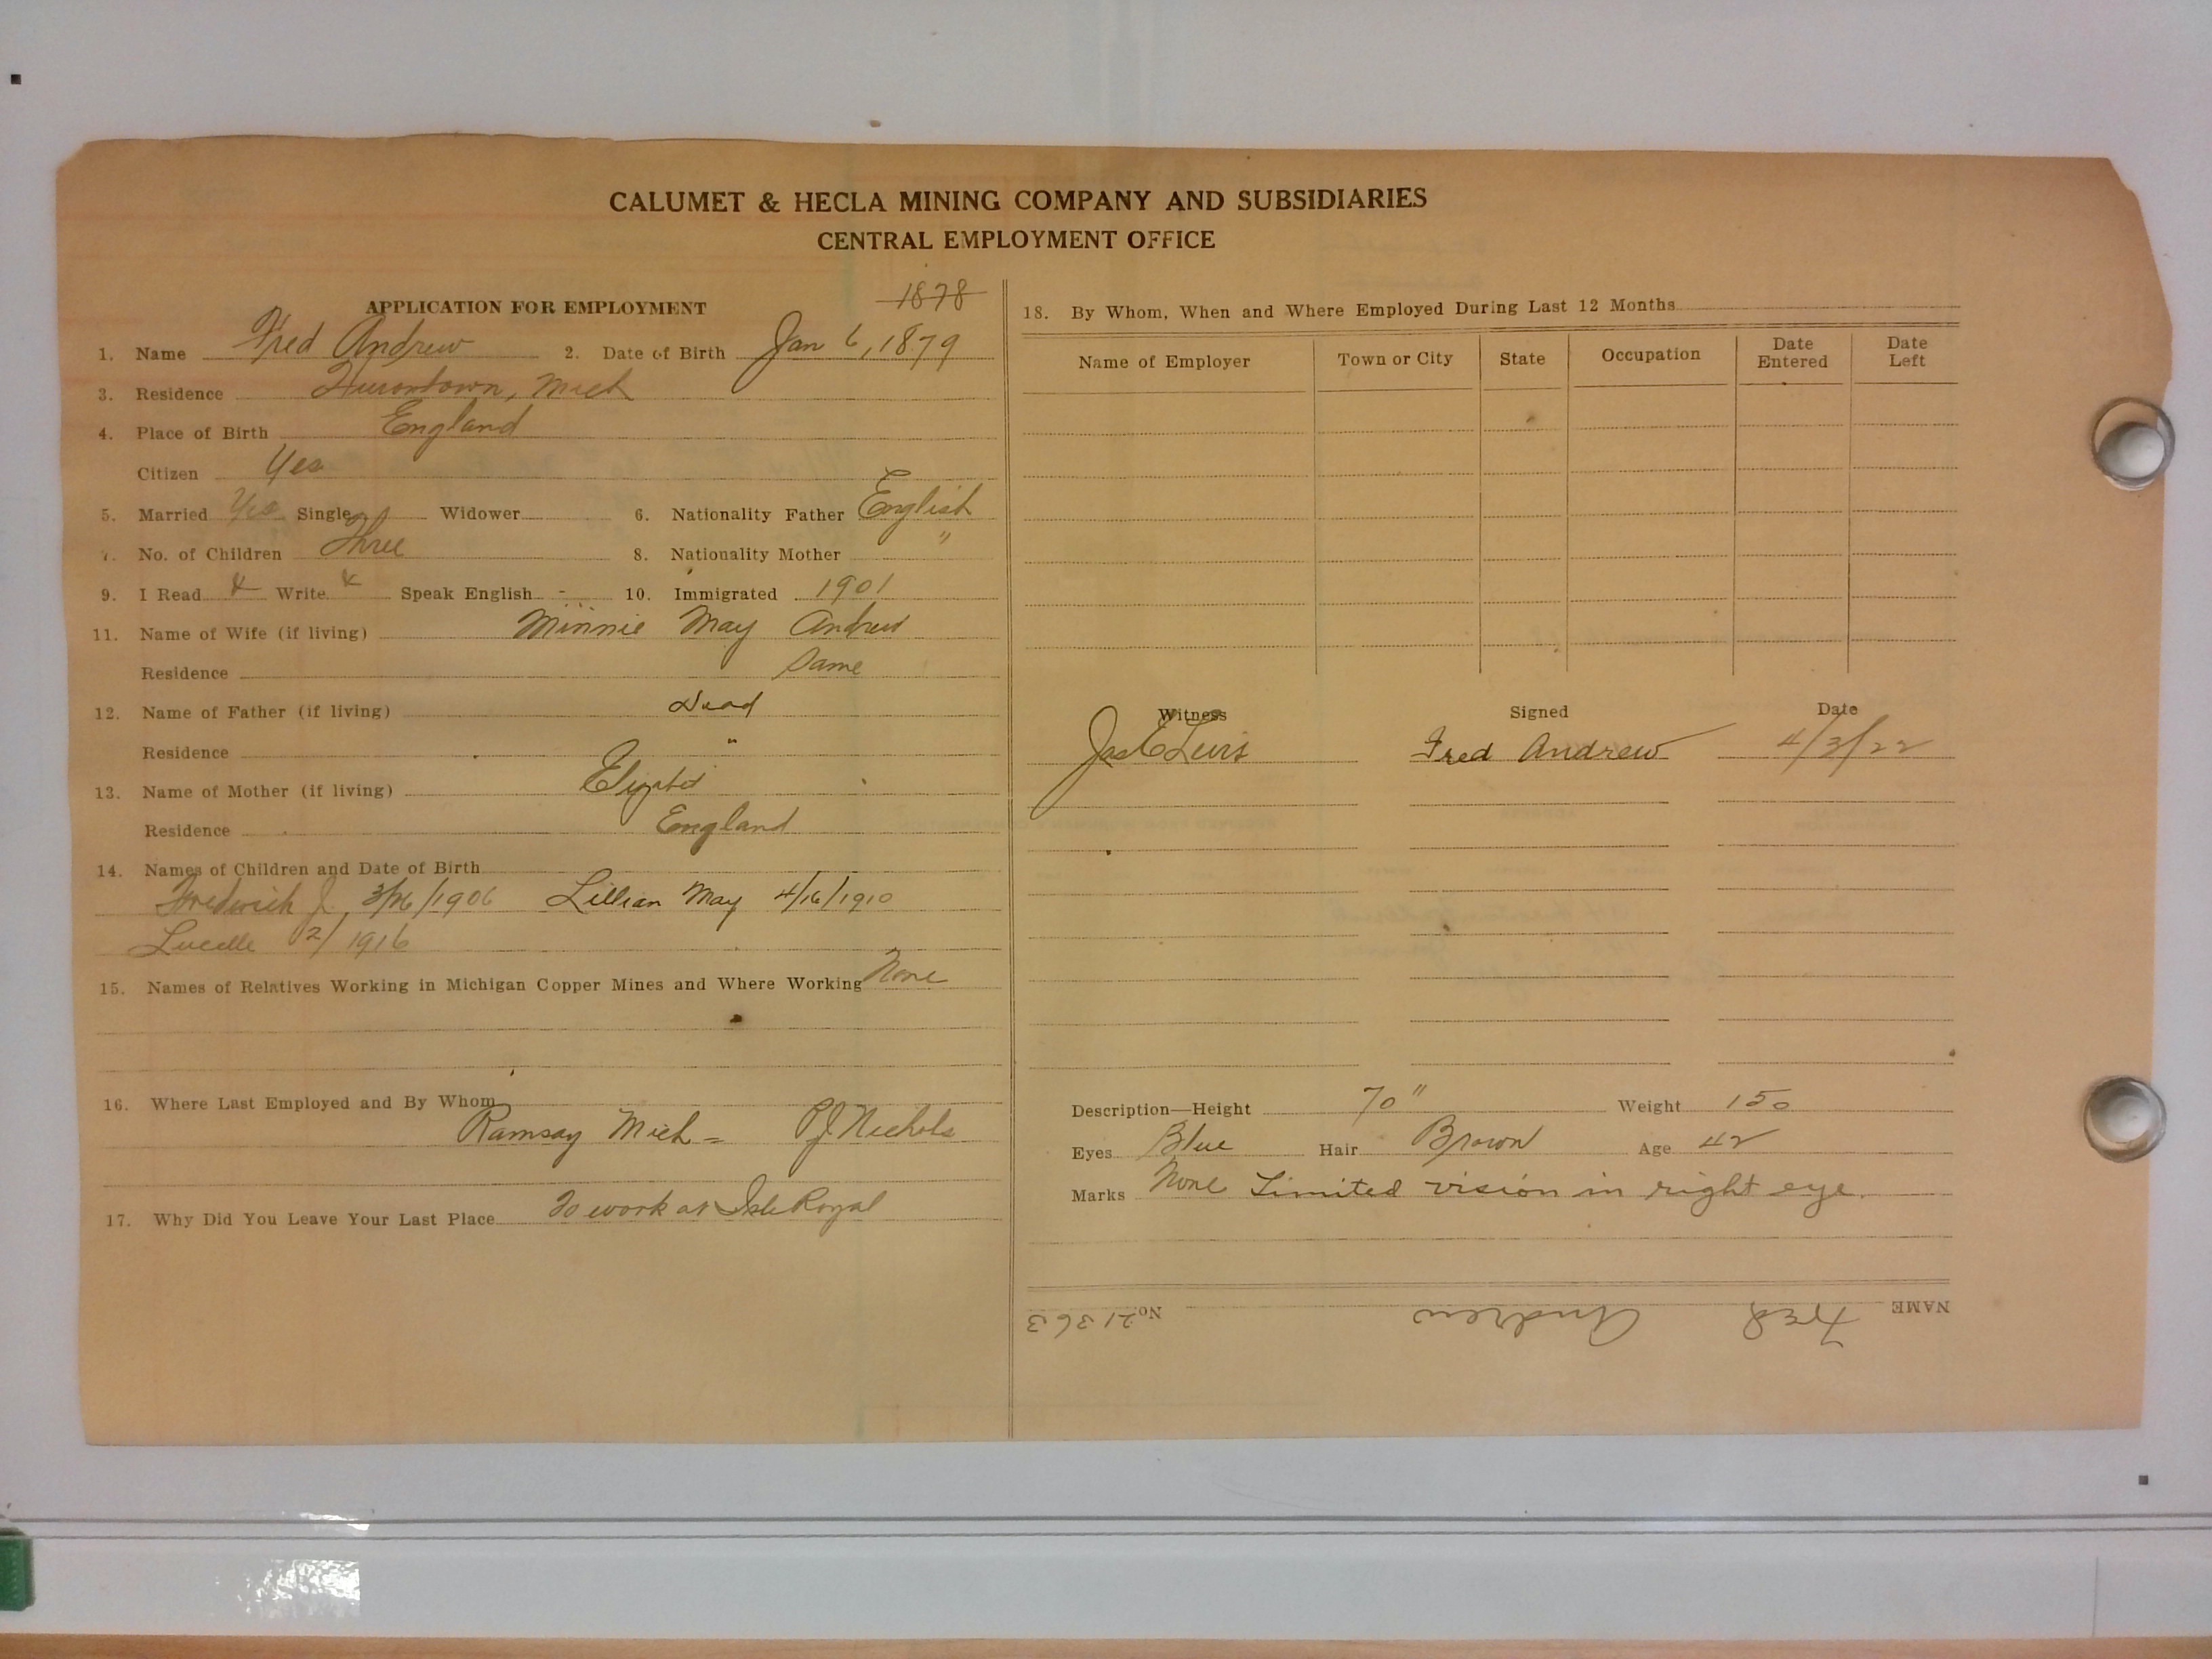 CALUMET & HECLA MINING COMPANY AND SUBSIDIARIES
CENTRAL EMPLOYMENT OFFICE
APPLICATION FOR EMPLOYMENT
1878
1. Name Fred Andrew 2. Date of Birth Jan 6, 1879
3. Residence Hurontown, Mich
4. Place of Birth England
Citizen Yes
5. Married Yes Single Widower 6. Nationality Father English
7. No. of Children Three 8. Nationality Mother "
9. I Read Write Speak English - 10. Immigrated 1901
11. Name of Wife (if living) Minnie May Andrew
Residence Same
12. Name of Father (if living) Dead
Residence "
13. Name of Mother (if living)
Residence England
14. Names of Children and Date of Birth
Fredrick J. 1906 Lillian May 4/16/1910
Lucelle 1916
15. Names of Relatives Working in Michigan Copper Mines and Where Working None
16. Where Last Employed and By Whom
Ramsay Mich - P.J. Nichols
17. Why Did You Leave Your Last Place To work at Isle Royal
18. By Whom, When and Where Employed During Last 12 Months
Name of Employer Town or City State Occupation Date Entered Date Left
Witness Signed Date
Jas C Lewis Fred Andrew 4/3/22
Description—Height 70" Weight 150
Eyes Blue Hair Brown Age 42
Marks None Limited vision in right eye.
NAME Fred Andrew No. 21363